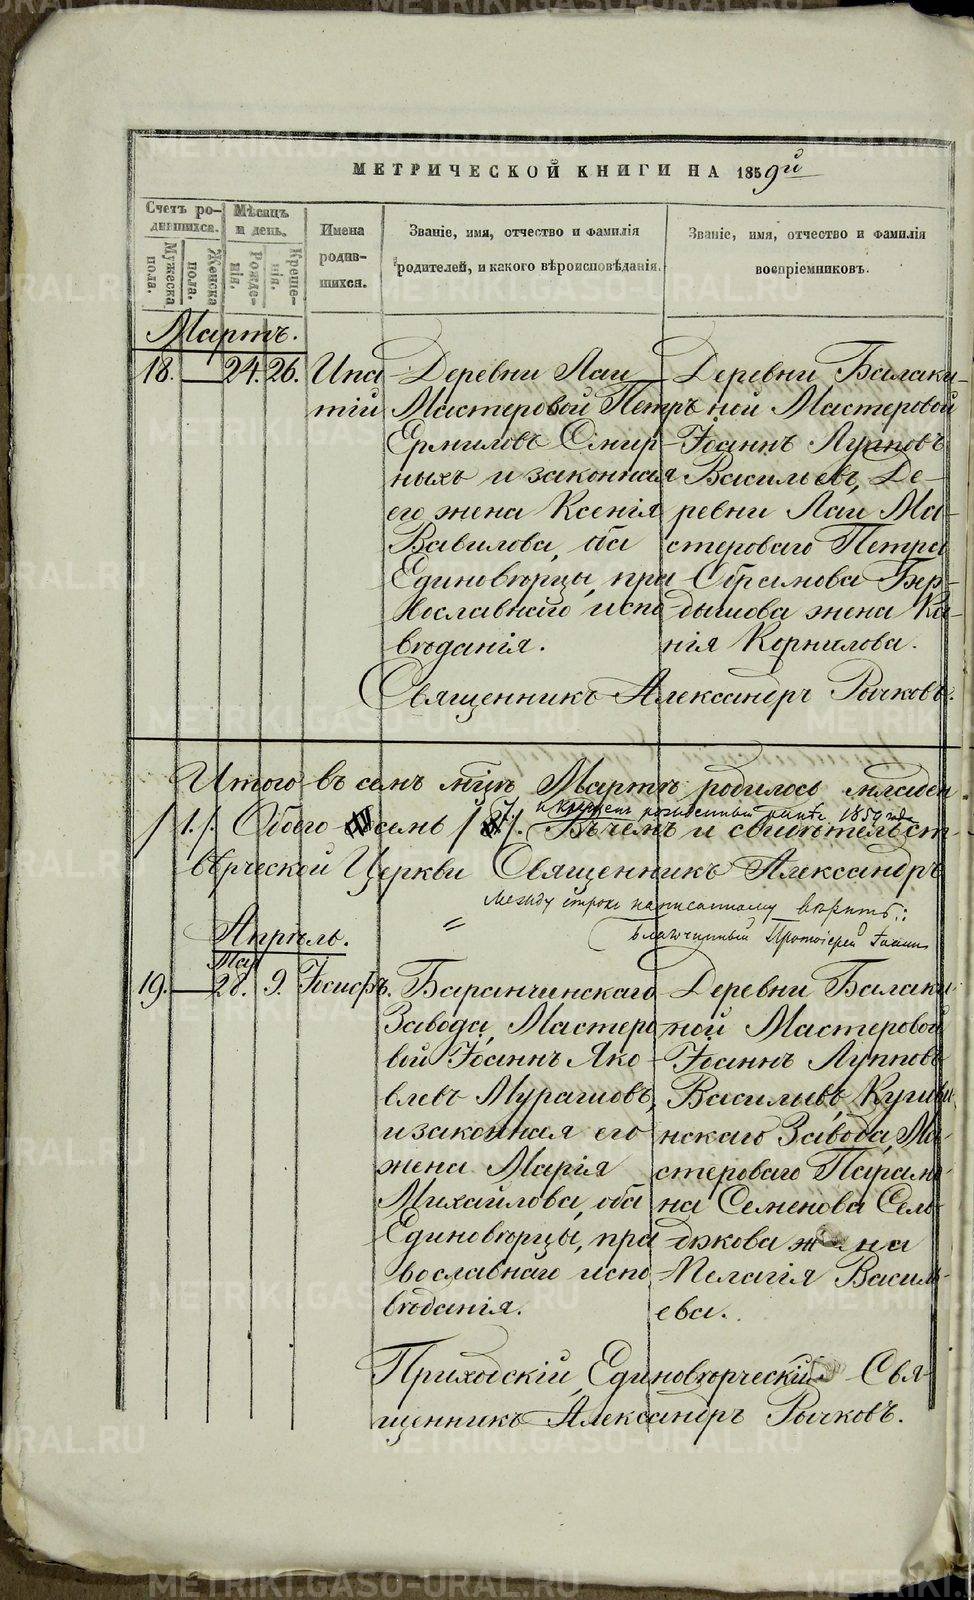 МЕТРИЧЕСКОЙ КНИГИ НА 1859й
Счетъ ро-
дившихся.
Мужеска пола.
Женска пола.
Мѣсяцъ
и день.
Рожде-
нія.
Креще-
нія.
Имена
родив-
шихся.
Званіе, имя, отчество и фамилія
родителей, и какого вѣроисповѣданія.
Званіе, имя, отчество и фамилія
воспріемниковъ.
Мартъ.
18. — 24. 26.
Ипа
тій
Деревни Лаи
Мастеровой Петръ
Ермиловъ Смир
ныхъ и законная
его жена Ксенія
Вавилова, оба
Единовѣрцы, пра
вославнаго испо
вѣданія.
Деревни Балаки-
ной Мастеровой
Іоаннъ Лупповъ
Васильевъ, Де-
ревни Лаи Ма-
стероваго Петра
Абрамова Бер-
дышова жена Ка-
нія Корнилова.
Священникъ Александръ Рычковъ.
Итого въ семъ мѣсяцѣ Мартѣ родилось младен
/ 1. /. Обоего семь / 7 /. Въ чемъ и свидѣтельст-
вѣрческой Церкви Священникъ Александръ
Между строкъ написанному вѣрить:
Благочинный Протоіерей Іоаннъ
Апрѣль.
Мая
19. — 28. 9.
Іосифъ.
Баранчинскаго
Завода, Мастеро
вой Іоаннъ Яко
влевъ Мурашовъ,
и законная его
жена Марія
Михайлова, оба
Единовѣрцы, пра
вославнаго испо
вѣданія.
Деревни Балаки-
ной Мастеровой
Іоаннъ Лупповъ
Васильевъ, Кушви
нскаго Завода, Ма-
стероваго Парамо-
на Семенова Сель-
дкова жена
Пелагія Василь-
ева.
Приходскій Единовѣрческій Свя-
щенникъ Александръ Рычковъ.
METRIKI.GASO-URAL.RU